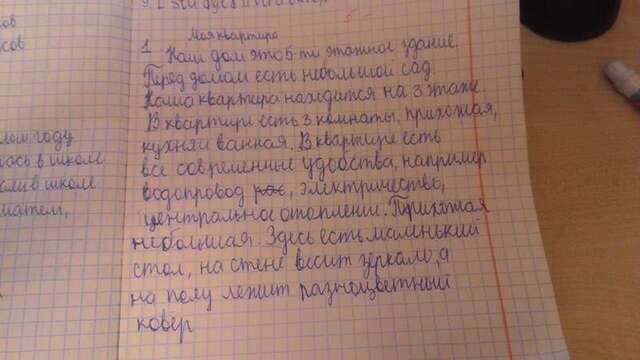 9. I
5
Моя квартира
1 Наш дом это 5-ти этажное здание.
Перед домам есть небольшой сад
Наша квартира находится на 3 этаже
В квартире есть 3 комнаты, прихожая,
кухня и ванная. В квартире есть
все современные удобства, например
водопровод, электричество,
центральное отоплени. Прихожая
небольшая. Здесь есть маленький
стол, на стене весит зеркало, а
на полу лежит разноцветный
ковер
ков
сов
лом году
лась в школе
школе